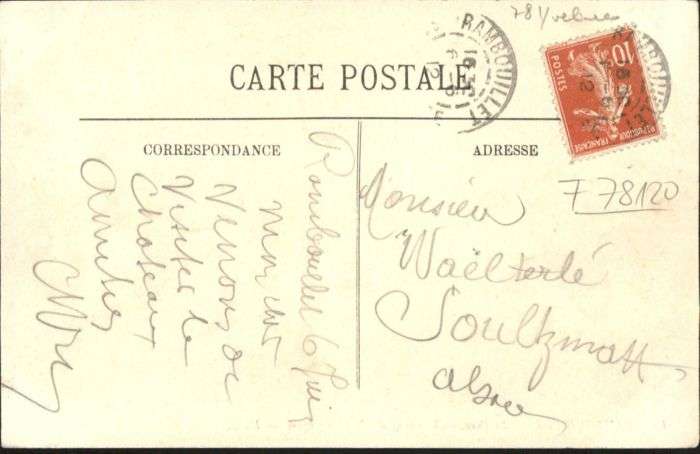 78 Yvelines
RAMBOUILLET
CARTE POSTALE
10
POSTES
REPUBLIQUE FRANCAISE
CORRESPONDANCE
ADRESSE
F 78120
Rambouillet 6 Juin
Mon cher
Venons de
Visiter le
Chateau
Amitiés
Monsieur
Waëlterlé
Soultzmatt
Alsace